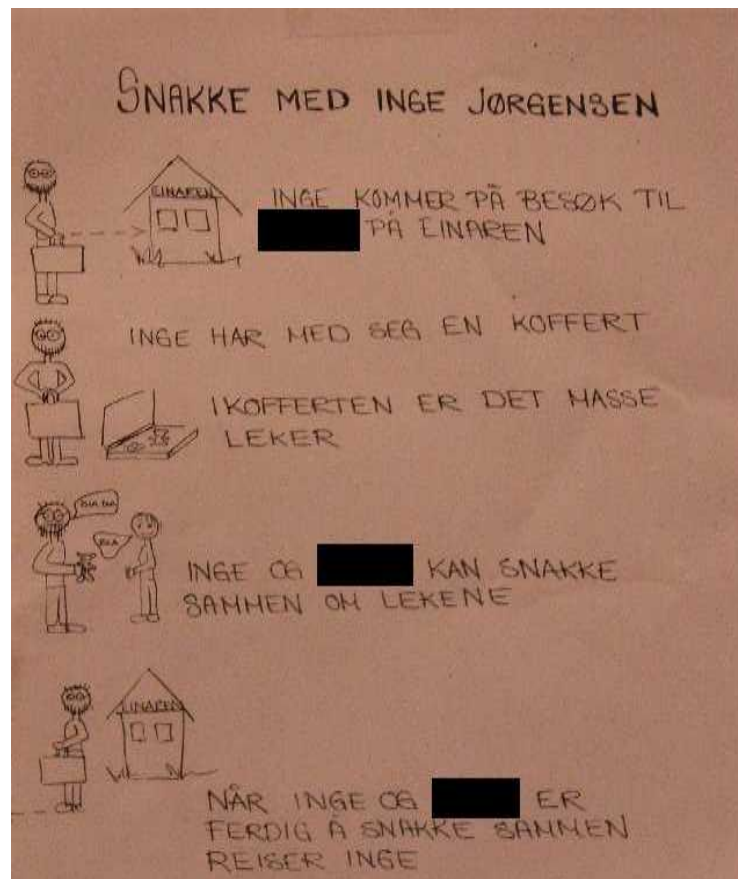 SNAKKE MED INGE JØRGENSEN
EINAREN
INGE KOMMER PÅ BESØK TIL
PÅ EINAREN
INGE HAR MED SEG EN KOFFERT
I KOFFERTEN ER DET MASSE
LEKER
BLA BLA
BLA
INGE OG KAN SNAKKE
SAMMEN OM LEKENE
EINAREN
NÅR INGE OG ER
FERDIG Å SNAKKE SAMMEN
REISER INGE